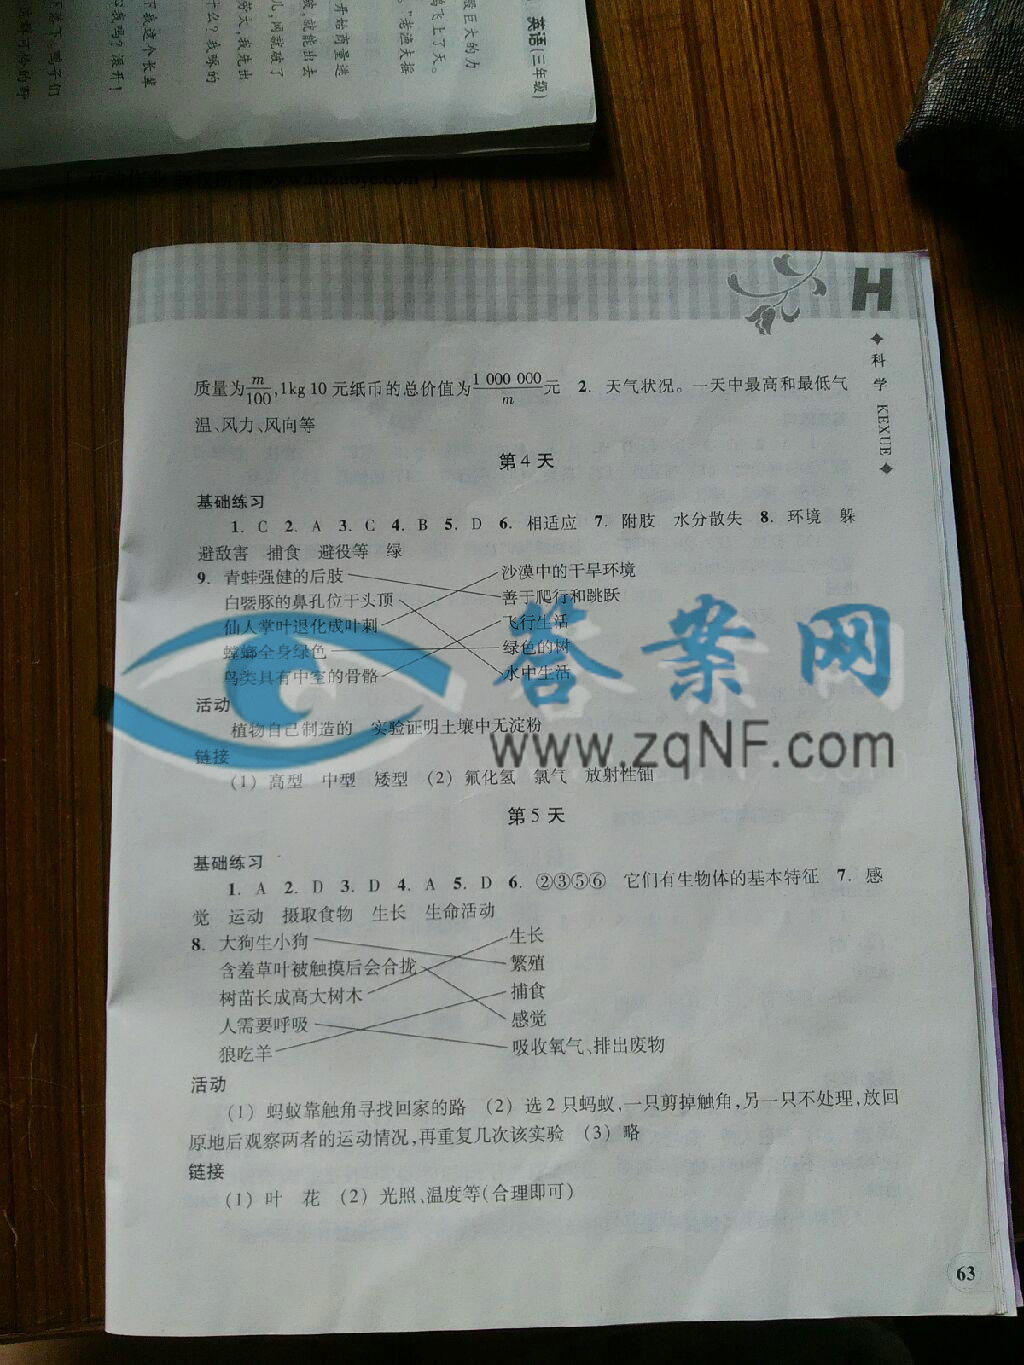 英语(三年级)
H
科学 KEXUE
质量为m/100,1kg 10 元纸币的总价值为1 000 000/m元 2. 天气状况。一天中最高和最低气
温、风力、风向等
第 4 天
基础练习
1. C 2. A 3. C 4. B 5. D 6. 相适应 7. 附肢 水分散失 8. 环境 躲
避敌害 捕食 避役等 绿
9. 青蛙强健的后肢 沙漠中的干旱环境
白暨豚的鼻孔位于头顶 善于爬行和跳跃
仙人掌叶退化成叶刺 飞行生活
螳螂全身绿色 绿色的树
鸟类具有中空的骨骼 水中生活
活动
植物自己制造的 实验证明土壤中无淀粉
链接
(1) 高型 中型 矮型 (2) 氟化氢 氯气 放射性铀
答案网
www.zqNF.com
第 5 天
基础练习
1. A 2. D 3. D 4. A 5. D 6. ②③⑤⑥ 它们有生物体的基本特征 7. 感
觉 运动 摄取食物 生长 生命活动
8. 大狗生小狗 生长
含羞草叶被触摸后会合拢 繁殖
树苗长成高大树木 捕食
人需要呼吸 感觉
狼吃羊 吸收氧气、排出废物
活动
(1) 蚂蚁靠触角寻找回家的路 (2) 选 2 只蚂蚁,一只剪掉触角,另一只不处理,放回
原地后观察两者的运动情况,再重复几次该实验 (3) 略
链接
(1) 叶 花 (2) 光照、温度等(合理即可)
63